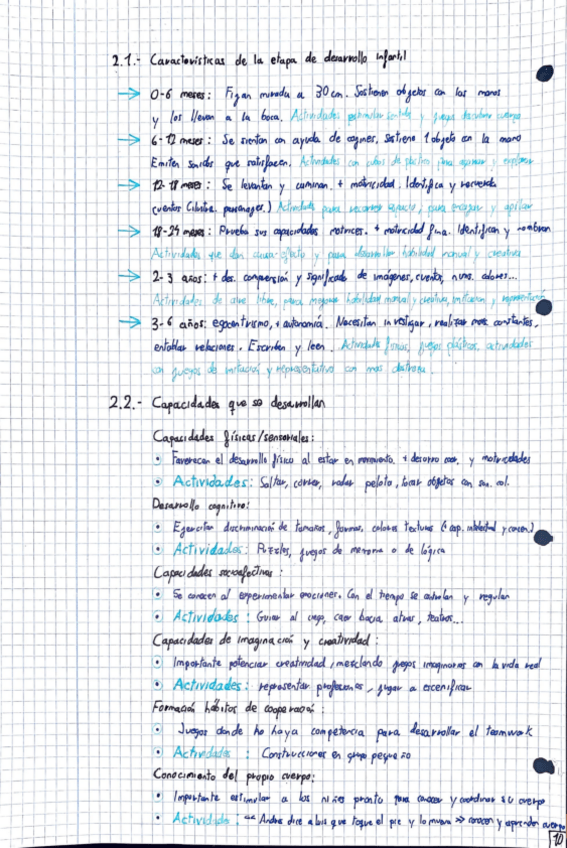 2.1.- Características de la etapa de desarrollo infantil
→ 0-6 meses: Fijan mirada a 30 cm. Sostienen objetos con las manos
y los llevan a la boca. Actividades estimular sentido y juego descubrir cuerpo
→ 6-12 meses: Se sientan con ayuda de cojines, sostiene 1 objeto en la mano
Emiten sonidos que satisfacen. Actividades con cubos de plástico para agarrar y explorar
→ 12-18 meses: Se levantan y caminan. + motricidad. Identifica y recuerda
cuentos (libros, personajes.) Actividades para recorrer espacio, para encajar y apilar
→ 18-24 meses: Prueba sus capacidades motrices. + motricidad fina. Identifican y nombran
Actividades que dan causa-efecto y para desarrollar habilidad manual y creativa
→ 2-3 años: + des. comprensión y significado de imágenes, cuentos, nums. colores...
Actividades de aire libre, para mejorar habilidad manual y creativa, imitación y representación
→ 3-6 años: egocentrismo, + autonomía. Necesitan investigar, realizar constantes,
entablar relaciones. Escriben y leen. Actividades físicas, juegos plásticos, actividades
con juegos de imitación y representativo con más destreza
2.2.- Capacidades que se desarrollan
Capacidades físicas/sensoriales:
• Favorecen el desarrollo físico al estar en movimiento. + desarro y motricidades
• Actividades: Saltar, correr, rodar pelota, tocar objetos con
Desarrollo cognitivo:
• Ejercitan discriminación de tamaños, formas, colores texturas (+ cap. intelectual y conoc.)
• Actividades: Puzzles, juegos de memoria o de lógica
Capacidades socioafectivas:
• Se conocen al experimentar emociones. Con el tiempo se controlan y regulan
• Actividades: Guiar al ciego, caer hacia atras, teatros...
Capacidades de imaginación y creatividad:
• Importante potenciar creatividad, mesclando juegos imaginarios con la vida real
• Actividades: representar profesiones, jugar a escenificar
Formación hábitos de cooperación:
• Juegos donde no haya competencia para desarrollar el teamwork
• Actividades: Construcciones en grupo pequeño
Conocimiento del propio cuerpo:
• Importante estimular a los niños pronto para conocer y coordinar su cuerpo
• Actividad: "Andrés dice a Luis que toque el pie y lo mueva" >> conocen y aprenden cuerpo
10